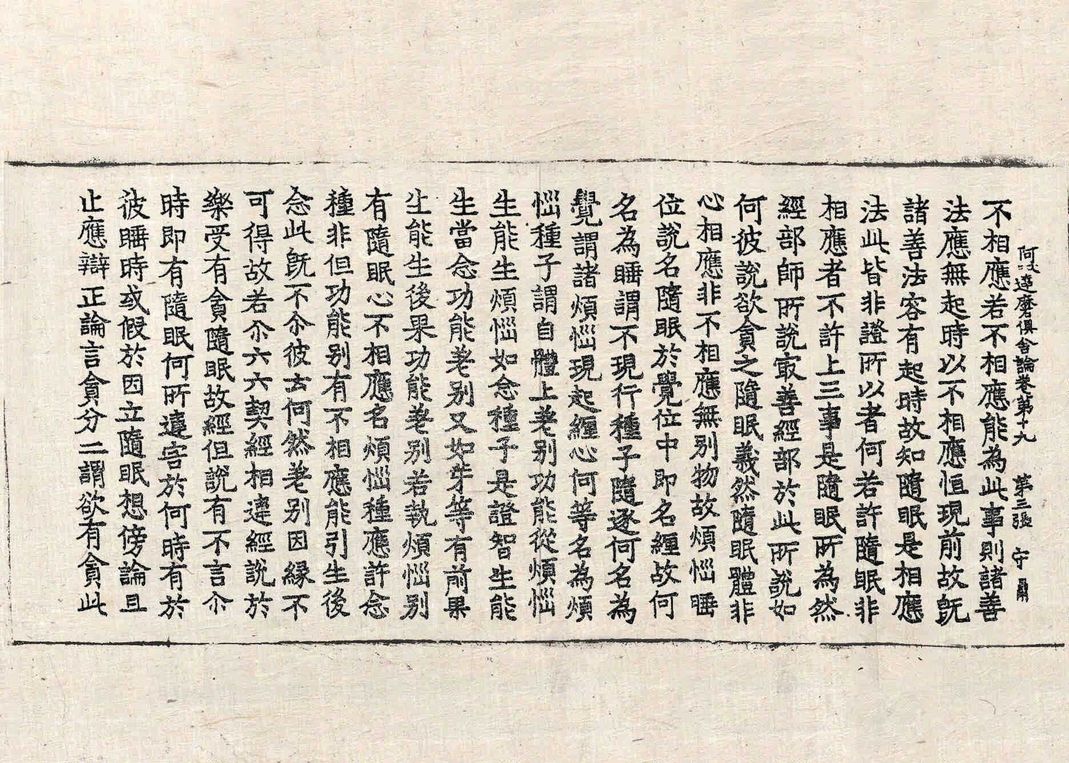 阿毗達磨俱舍論卷第十九 第三張 守
不相應若不相應能為此事則諸善
法應無起時以不相應恒現前故旣
諸善法容有起時故知隨眠是相應
法此皆非證所以者何若許隨眠非
相應者不許上三事是隨眠所為然
經部師所說㝡善經部於此所說如
何彼說欲貪之隨眠義然隨眠體非
心相應非不相應無別物故煩惱睡
位說名隨眠於覺位中即名纏故何
名為睡謂不現行種子隨逐何名為
覺謂諸煩惱現起纏心何等名為煩
惱種子謂自體上差別功能從煩惱
生能生煩惱如念種子是證智生能
生當念功能差別又如芽等有前果
生能生後果功能差別若執煩惱別
有隨眠心不相應名煩惱種應許念
種非但功能別有不相應能引生後
念此旣不尒彼云何然差別因緣不
可得故若尒六六契經相違經說於
樂受有貪隨眠故經但說有不言尒
時即有隨眠何所違害於何時有於
彼睡時或假於因立隨眠想傍論且
止應辯正論言貪分二謂欲有貪此